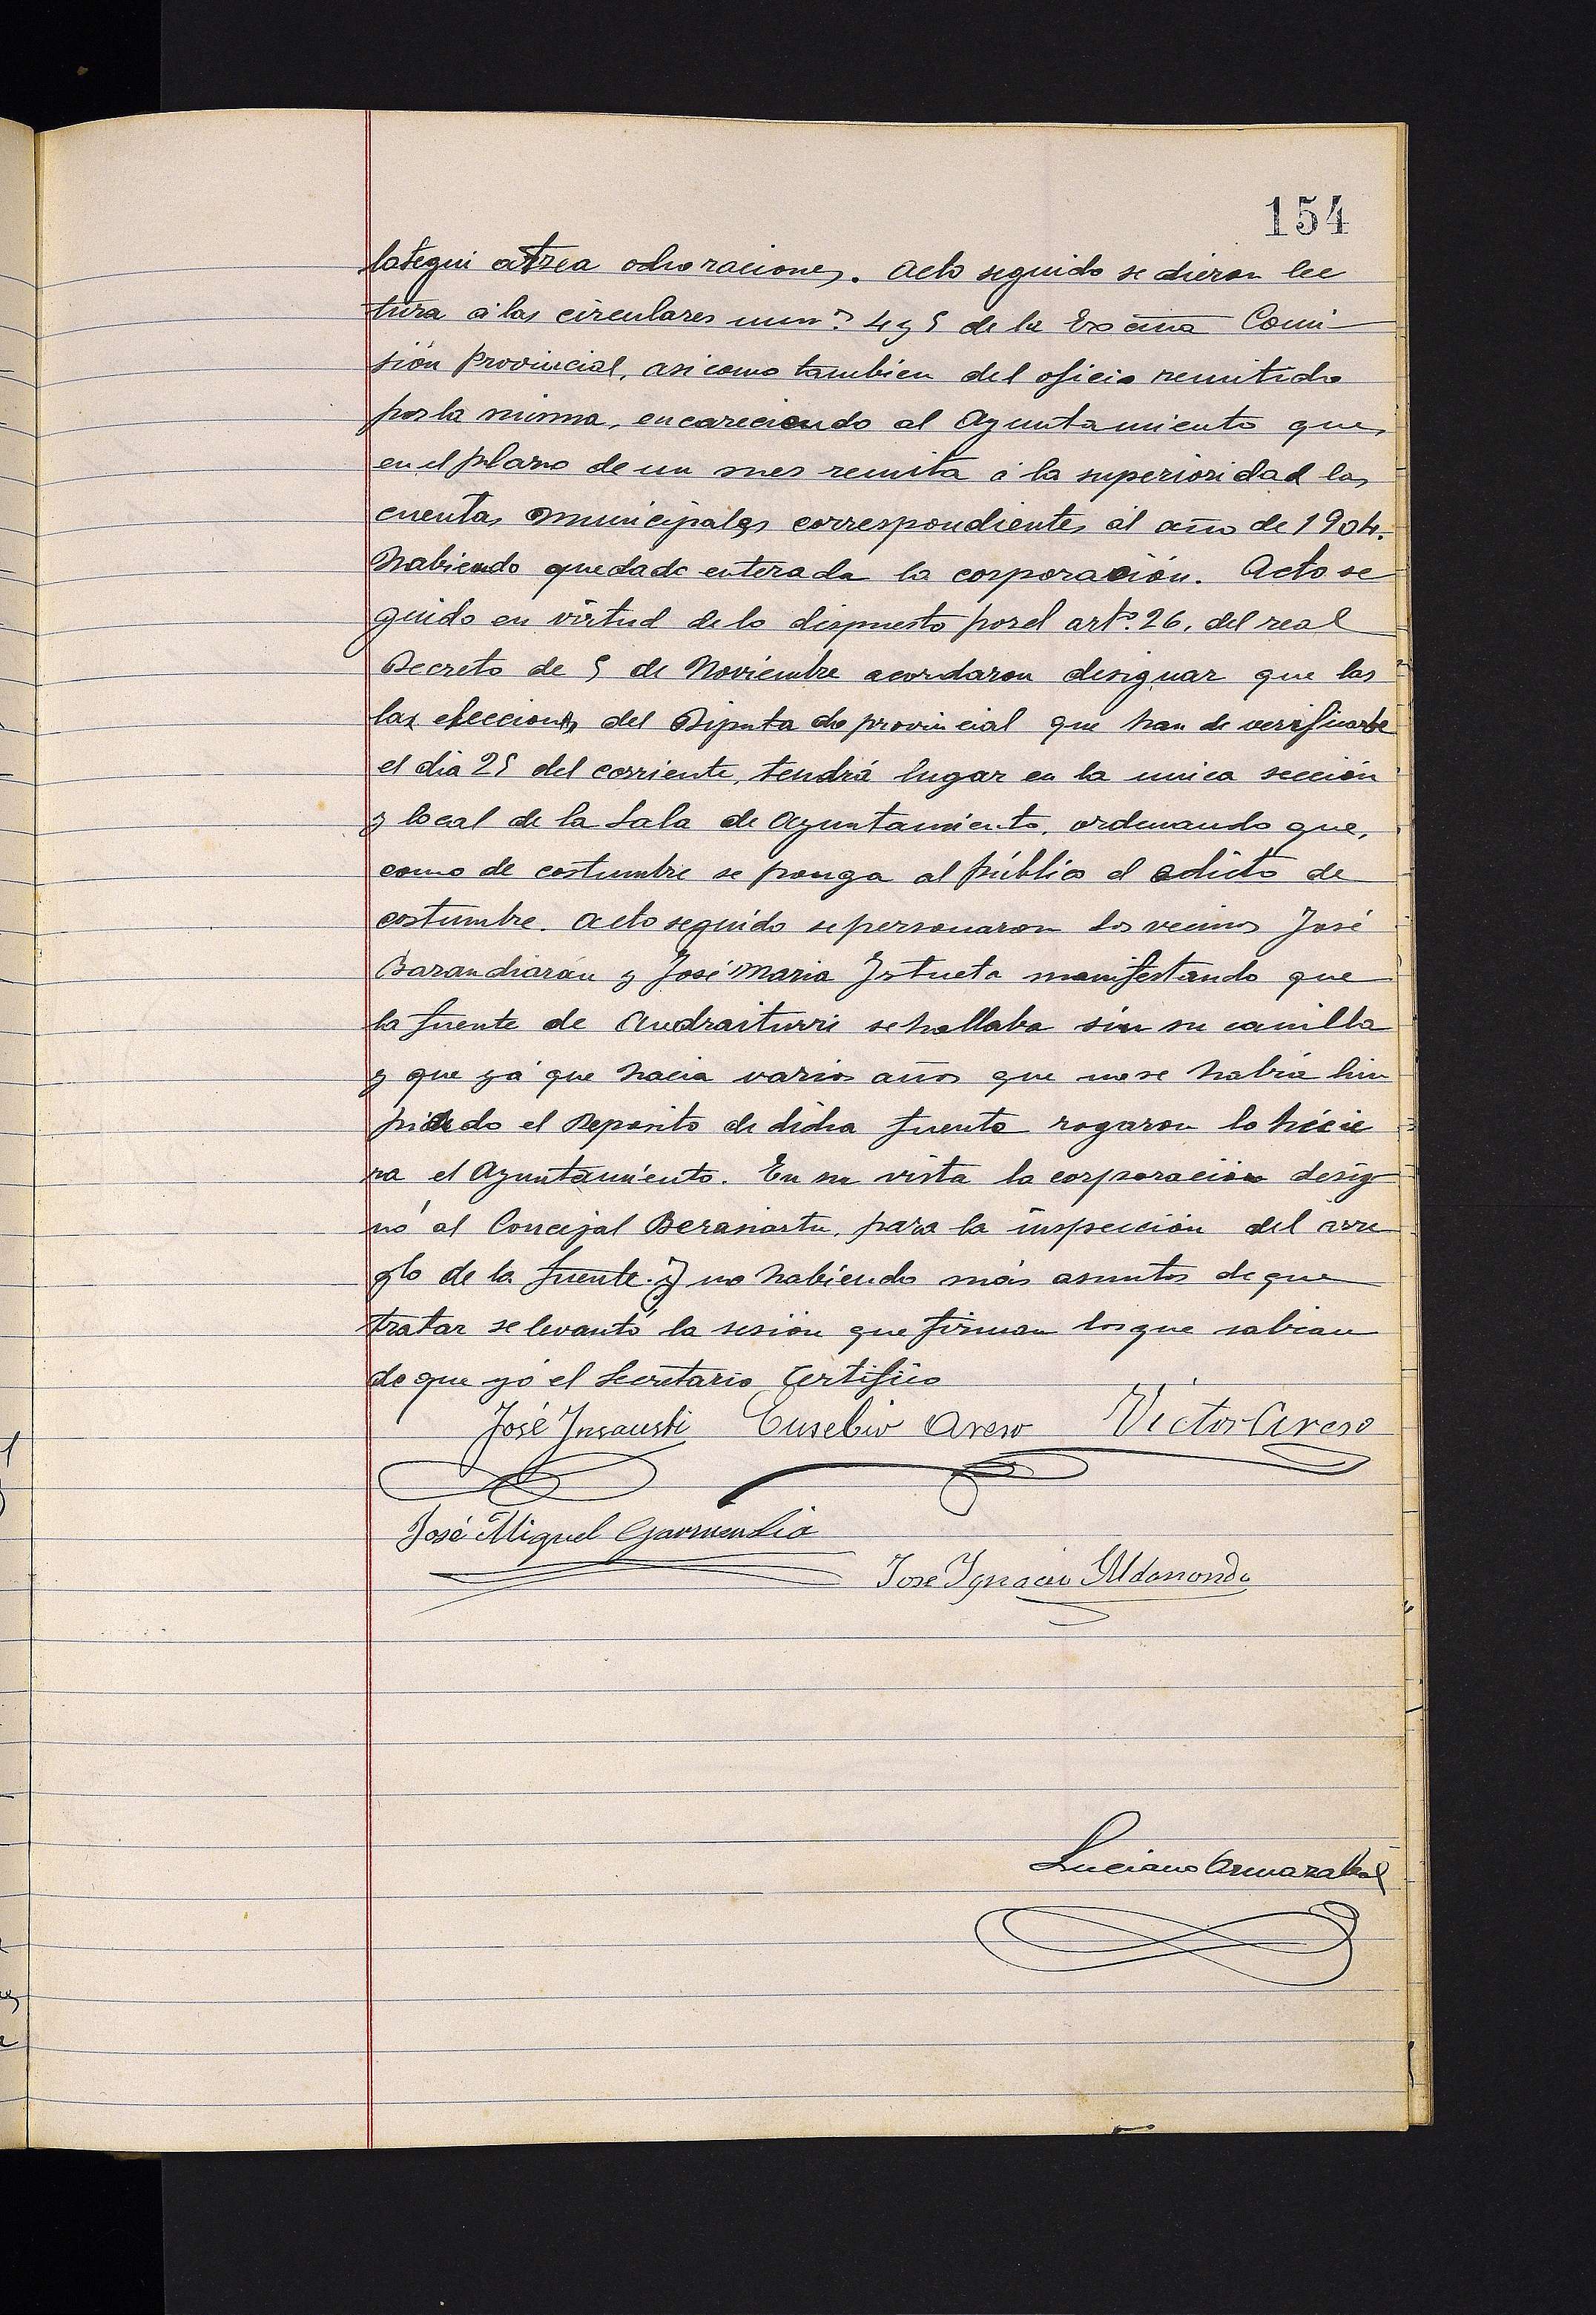 154
lategui atrea ocho raciones. Acto seguido se dieron lec
tura á las circulares num.º 4 y 5 de la Excma Comi-
sión provincial, asi como tambien del oficio remitido
por la misma, encareciendo al Ayuntamiento que,
en el plazo de un mes remita á la superioridad las
cuentas municipales correspondientes al año de 1904.
habiendo quedado enterada la corporación. Acto se
guido en virtud de lo dispuesto por el artº. 26, del real
Decreto de 5 de Noviembre acordaron designar que las
las elecciones del Diputado provincial que han de verificarse
el dia 25 del corriente, tendrá lugar en la unica sección
y local de la Sala de Ayuntamiento, ordenando que,
como de costumbre se ponga al público el edicto de
costumbre. Acto seguido se personaron los vecinos José
Barandiarán y José Maria Iztueta manifestando que
la fuente de Andraiturri se hallaba sin su canilla
y que yá que hacia varios años que no se habia lim
piado el Deposito de dicha fuente rogaron lo hicie
ra el Ayuntamiento. En su vista la corporación desig
nó al Concejal Berasiartu, para la inspección del arre
glo de la fuente. Y no habiendo más asuntos de que
tratar se levantó la sesión que firman los que sabian
de que yó el Secretario Certifico
José Insausti Eusebio Areso Victor Areso
José Miguel Garmendia
Jose Ignacio Aldanondo
Luciano